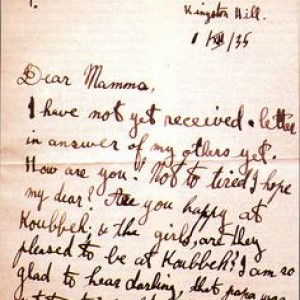 Kingston Hill.
1/XII/35
Dear Mamma,
I have not yet received a letter
in answer of my others yet.
How are you? Not to tired I hope
my dear? Are you happy at
Koubbeh; & the girls, are they
pleased to be at Koubbeh? I am so
glad to hear darling, that papa was